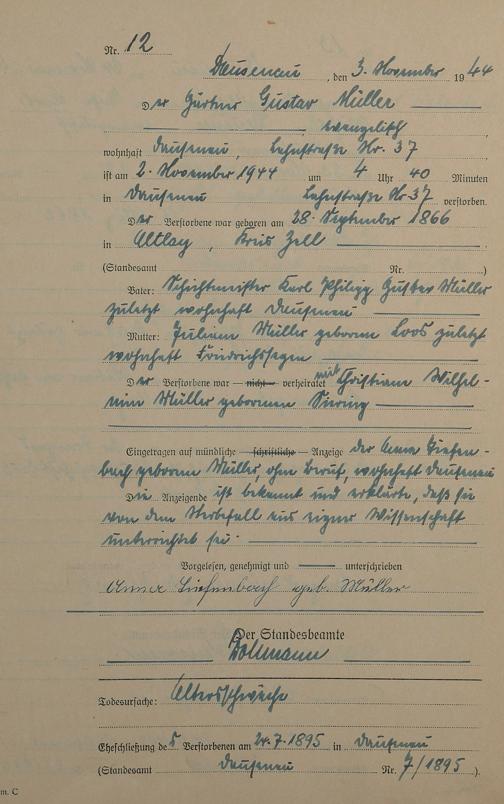 Nr. 12
Dausenau, den 3. November 1944
Der Gärtner Gustav Müller
evangelisch
wohnhaft Dausenau, Lahnstraße Nr. 37
ist am 2. November 1944 um 4 Uhr 40 Minuten
in Dausenau Lahnstraße Nr 37 verstorben.
Der Verstorbene war geboren am 28. September 1866
in Altlay, Kreis Zell
(Standesamt Nr. )
Vater: Schichtmeister Karl Philipp Gustav Müller
zuletzt wohnhaft Dausenau
Mutter: Juliane Müller geborene Loos zuletzt
wohnhaft Friedrichssegen
Der Verstorbene war — nicht — verheiratet mit Christiane Wilhel-
mine Müller geborenen
Eingetragen auf mündliche — schriftliche — Anzeige der Anna Diefen-
bach geborene Müller, ohne Beruf, wohnhaft Dausenau
Die Anzeigende ist bekannt und erklärte, daß sie
von dem Sterbefall aus eigner Wissenschaft
unterrichtet sei.
Vorgelesen, genehmigt und unterschrieben
Anna Diefenbach geb. Müller
Der Standesbeamte
Todesursache: Altersschwäche
Eheschließung des Verstorbenen am 24.7.1895 in Dausenau
(Standesamt Dausenau Nr. 7/1895).
m. C